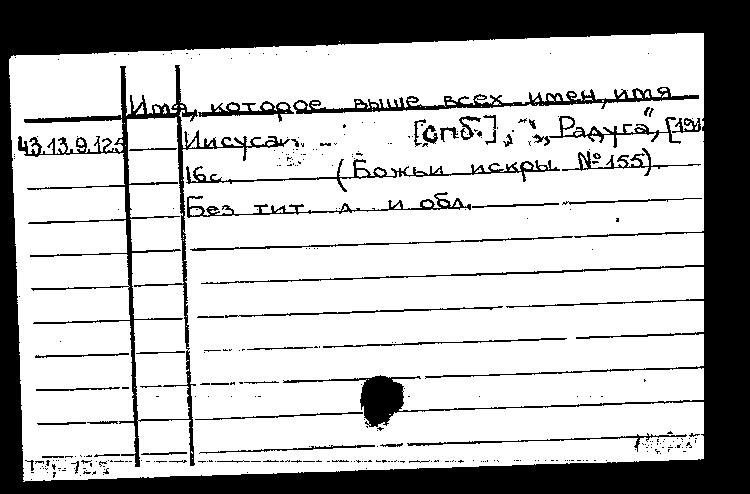 Имя, которое выше всех имен, имя
43.13.9.125 Иисуса. [спб.], "Радуга", [191
16с. (Божьи искры. №155).
Без тит. л. и обл.